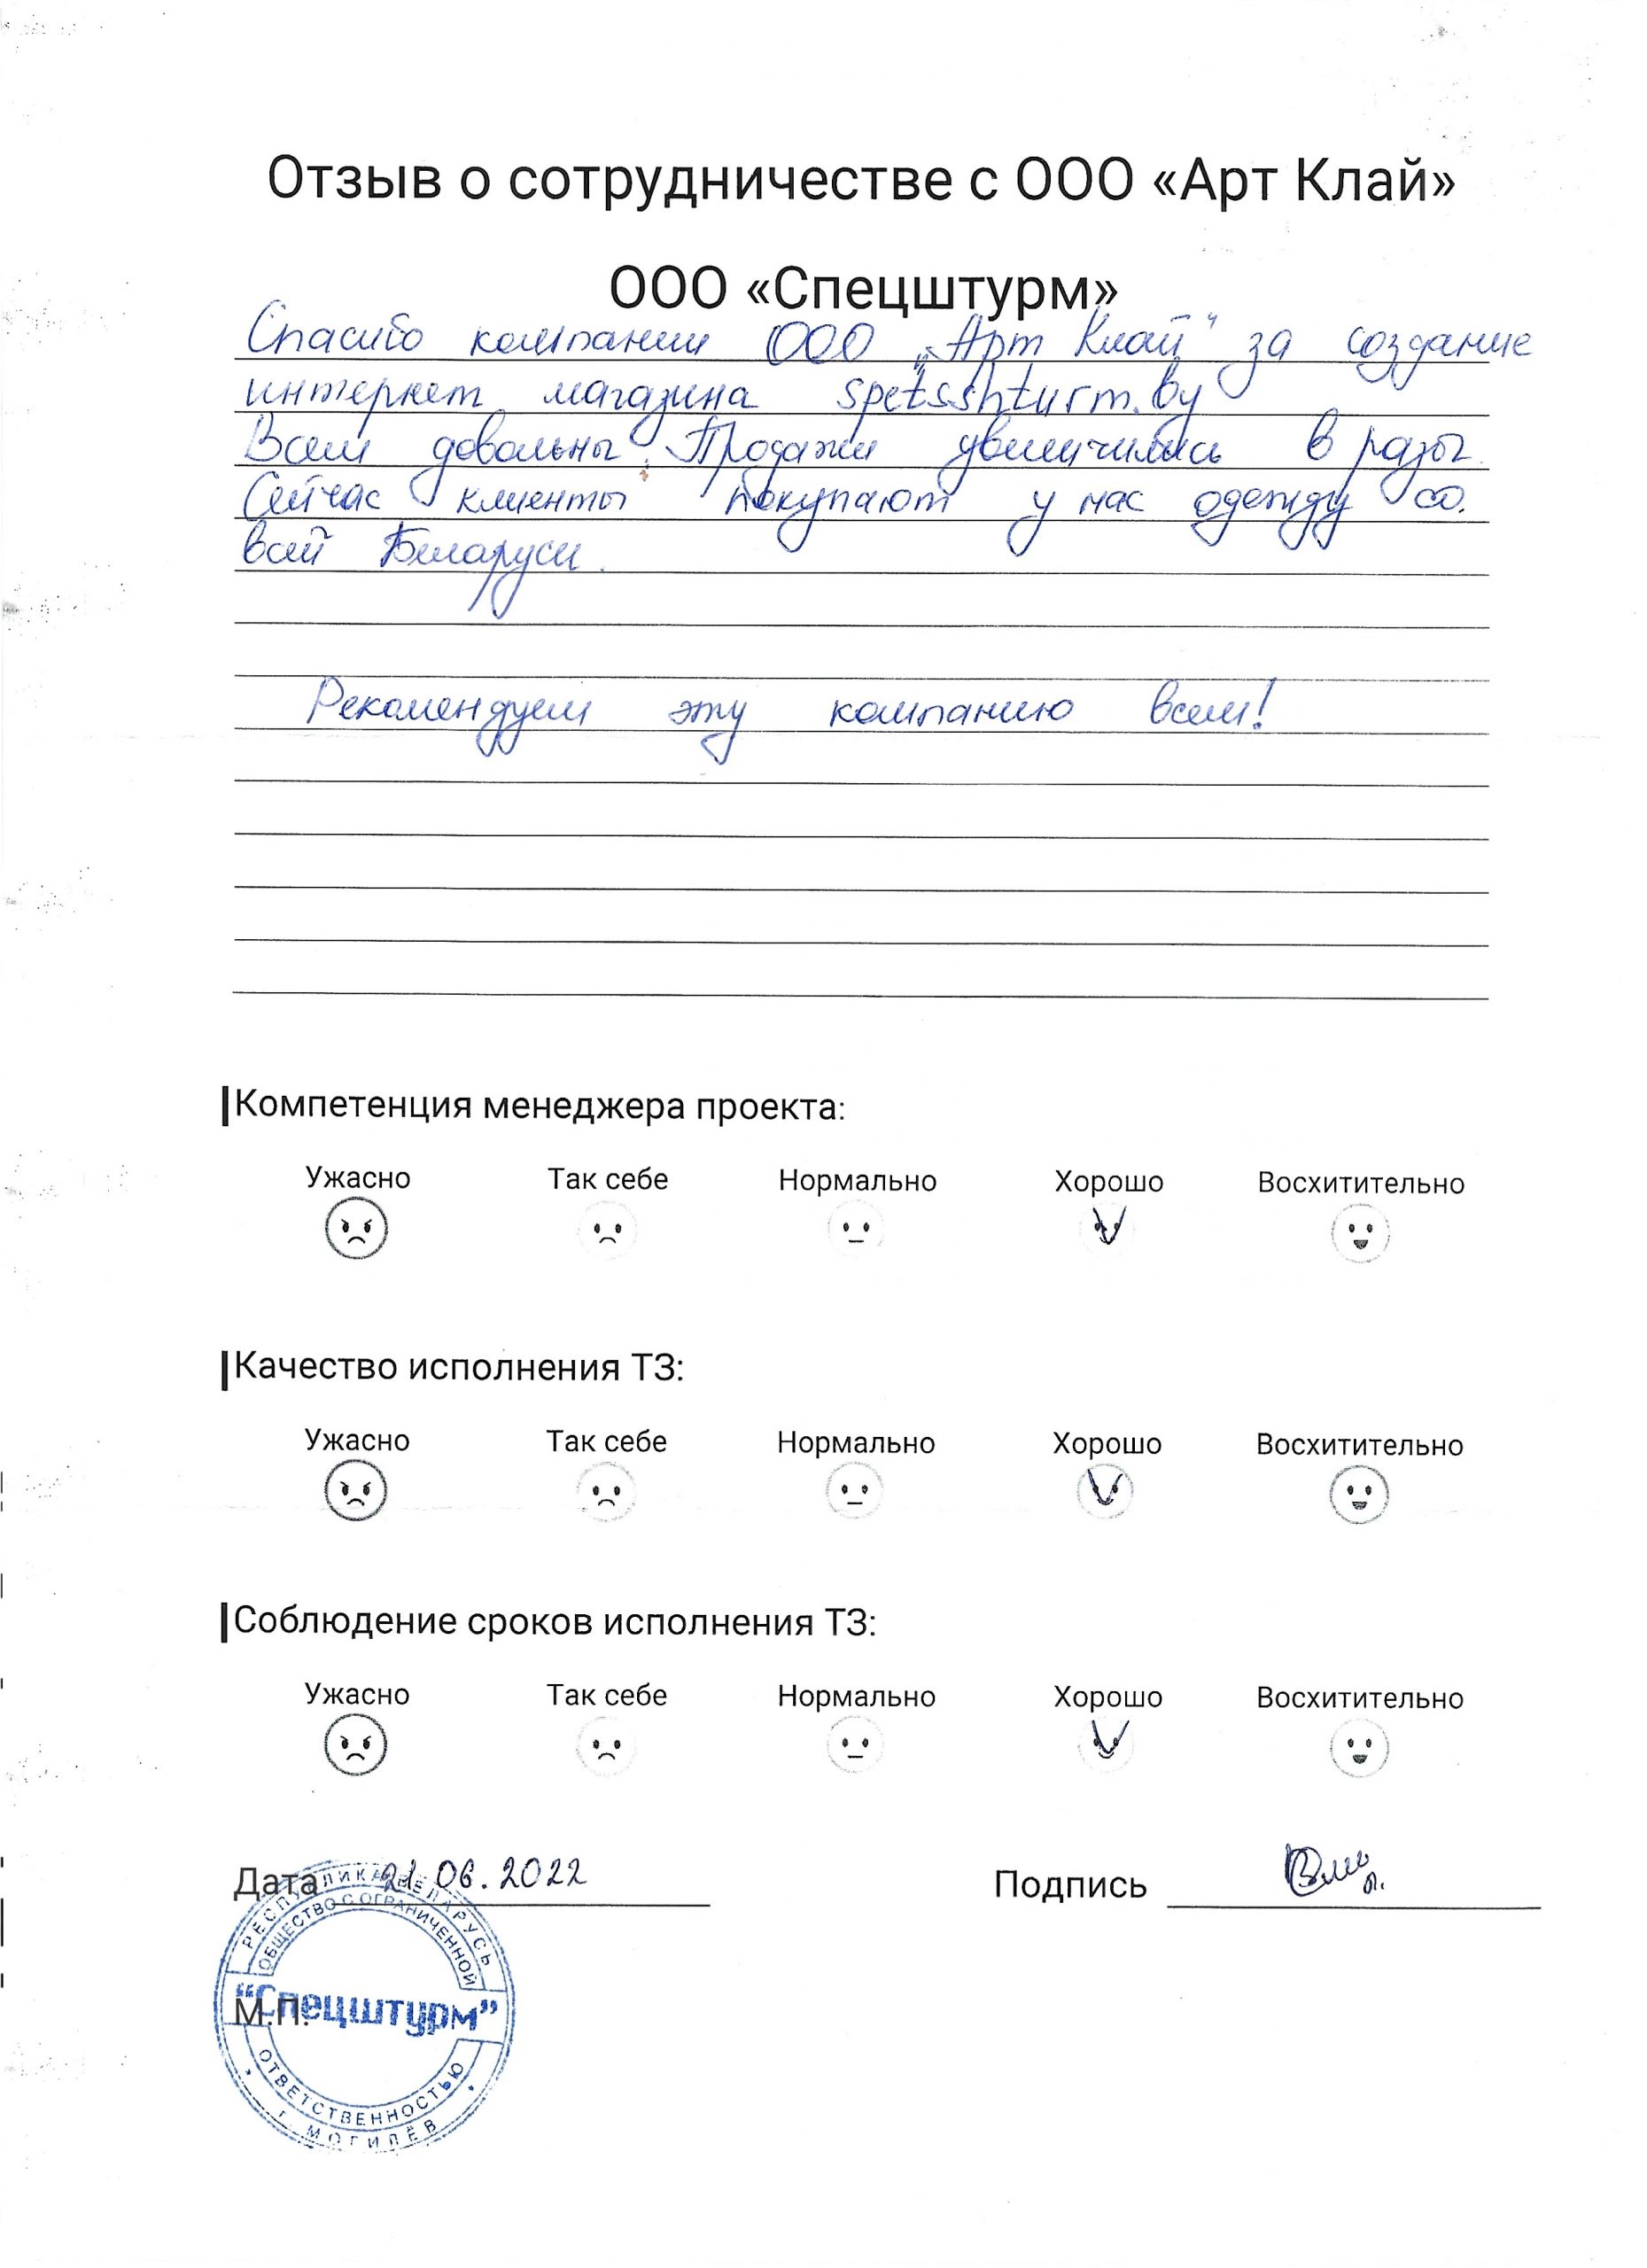 Отзыв о сотрудничестве с ООО «Арт Клай»
ООО «Спецштурм»
Спасибо компании ООО „Арт Клай“ за создание
интернет магазина spetsshturm.by
Всем довольны. Продажи увеличились в разы.
Сейчас клиенты покупают у нас одежду со.
всей Беларуси.
Рекомендуем эту компанию всем!
Компетенция менеджера проекта:
Ужасно Так себе Нормально Хорошо Восхитительно
Качество исполнения ТЗ:
Ужасно Так себе Нормально Хорошо Восхитительно
Соблюдение сроков исполнения ТЗ:
Ужасно Так себе Нормально Хорошо Восхитительно
Дата 21.06.2022 Подпись
РЕСПУБЛИКА БЕЛАРУСЬ
ОБЩЕСТВО С ОГРАНИЧЕННОЙ
"Спецштурм"
М.П.
ОТВЕТСТВЕННОСТЬЮ
г. МОГИЛЁВ